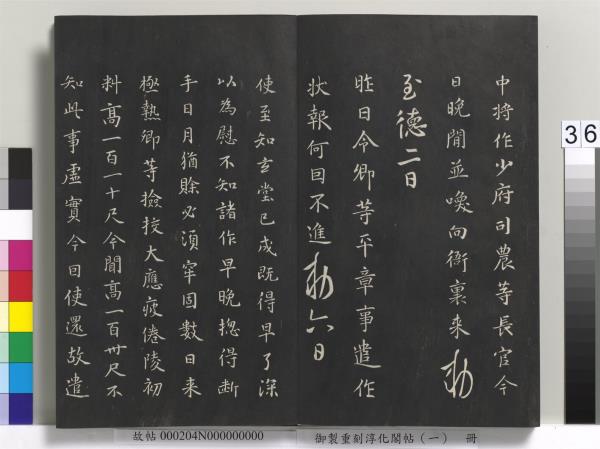 中將作少府司農等長官今
日晚間並喚向衙裏來勅
至德二日
昨日令卿等平章事遣作
狀報何因不進勅六日
使至知玄堂已成既得早了深
以為慰不知諸作早晚揔得断
手日月猶賒必須牢固數日來
極熱卿等撿挍大應疲倦陵初
料高一百一十尺今聞高一百卅尺不
知此事虛實今因使還故遣
36
故帖 000204N000000000
御製重刻淳化閣帖(一) 冊